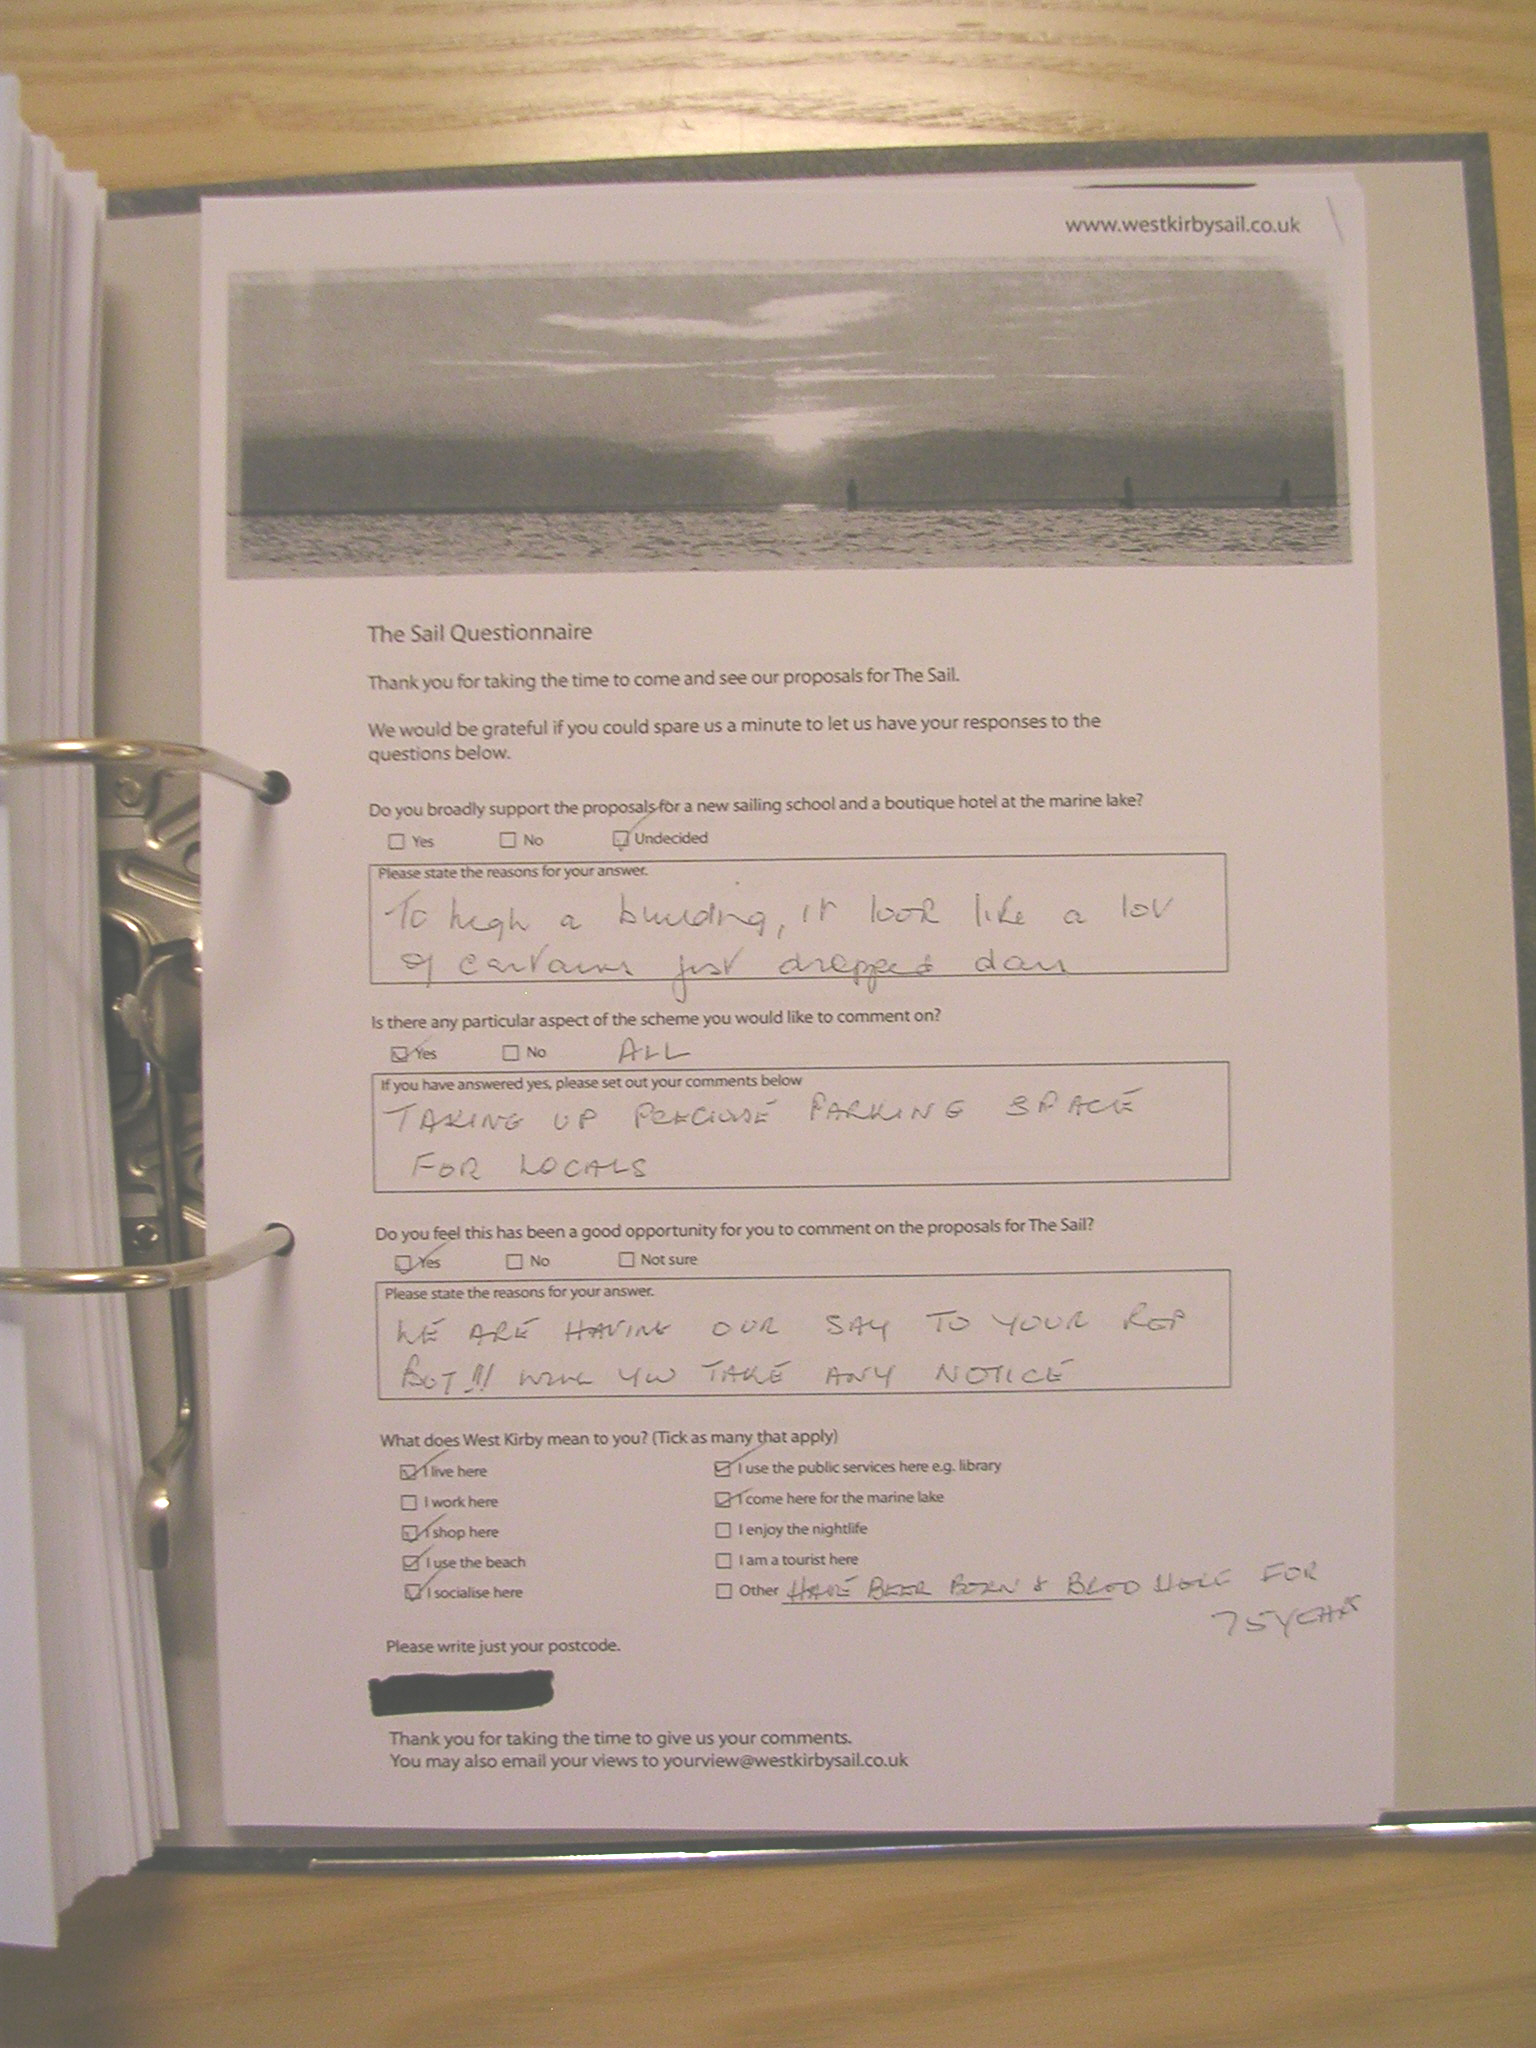 www.westkirbysail.co.uk
The Sail Questionnaire
Thank you for taking the time to come and see our proposals for The Sail.
We would be grateful if you could spare us a minute to let us have your responses to the
questions below.
Do you broadly support the proposals for a new sailing school and a boutique hotel at the marine lake?
Yes No Undecided
Please state the reasons for your answer.
To high a building, it look like a lot
of curtains just dropped down
Is there any particular aspect of the scheme you would like to comment on?
Yes No ALL
If you have answered yes, please set out your comments below
TAKING UP PARKING SPACE
FOR LOCALS
Do you feel this has been a good opportunity for you to comment on the proposals for The Sail?
Yes No Not sure
Please state the reasons for your answer.
WE ARE HAVING OUR SAY TO YOUR REP
BUT!!! WILL YOU TAKE ANY NOTICE
What does West Kirby mean to you? (Tick as many that apply)
I live here I use the public services here e.g. library
I work here I come here for the marine lake
I shop here I enjoy the nightlife
I use the beach I am a tourist here
I socialise here Other HAVE BEEN BORN & BRED HERE FOR
75 YEARS
Please write just your postcode.
Thank you for taking the time to give us your comments.
You may also email your views to yourview@westkirbysail.co.uk